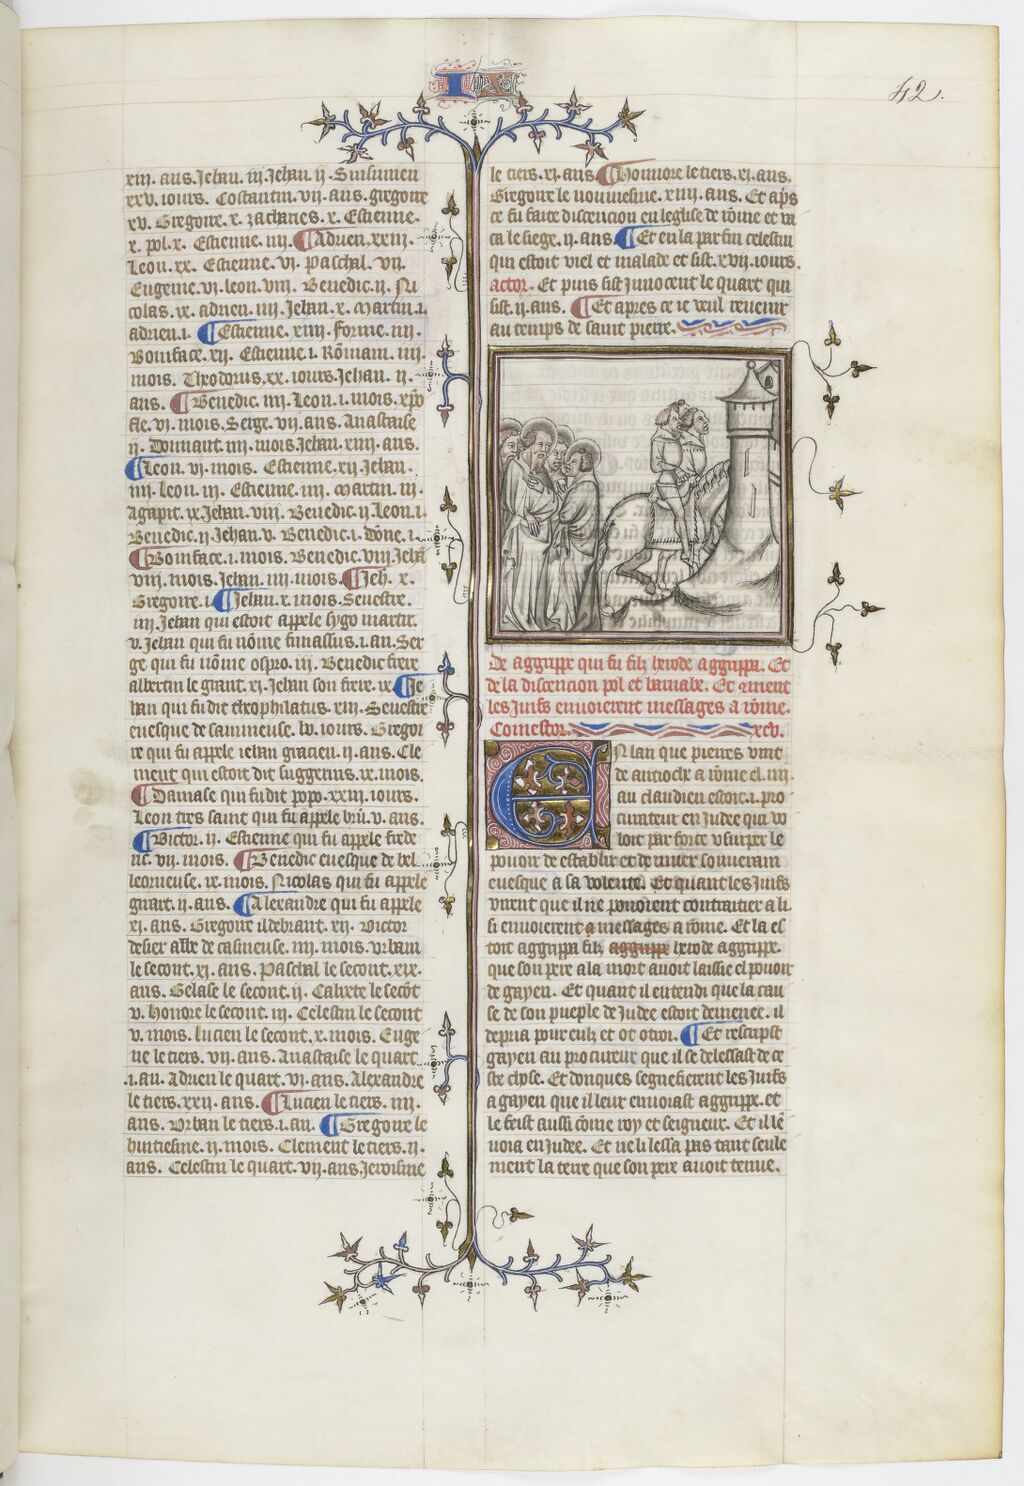 IX
42.
xiii. ans. Jehan. iii. Jehan. ii. Sinsumen
xxv. iours. Costantin. vii. ans. gregoire
xv. Gregoire. x. zacharies. x. Estienne.
x. pol. x. Estienne. iiii. Adrien. xxiii.
Leon. xx. Estienne. vi. paschal. vii.
Eugenie. vi. leon. viii. Benedic. ii. Ni
colas. ix. adrien. iiii. Jehan. x. Martin. i.
adrien. i. Estienne. xiiii. forme. iiii.
Boniface. xii. Estienne. i. Romain. iiii.
mois. Theodorus. xx. iours. Jehan. ii.
ans. Benedic. iiii. Leon. i. mois. xpo
fle. vi. mois. Serge. vii. ans. Anastaise
ii. mois. Jehan. xiiii. ans.
Leon. vi. mois. Estienne. xii. Jehan.
iiii. Leon. iii. Estienne. iiii. Martin. iii.
Agapit. ix. Jehan. viii. Benedic. ii. Leon. i.
Benedic. ii. Jehan. v. Benedic. i. done. i.
Boniface. i. mois. Benedic. viii. Jeha
viii. mois. Jehan. iiii. mois. Jeh. x.
Gregoire. i. Jehan. x. mois. Sevestre.
iiii. Jehan qui estoit appele hygo martir.
v. Jehan qui fu nõme finassus. i. an. Ser
ge qui fu nõme ospro. iii. Benedic frere
albertin le grant. xi. Jehan son frere. ix. Je
han qui fu dit theophilatus. xiii. Sevestre
evesque de savineuse. lv. iours. Gregoi
re qui fu appele iehan gracien. ii. ans. Cle
ment qui estoit dit suggerius. ix. mois.
Damase qui fu dit popo. xxiii. iours.
Leon tres saint qui fu appele brũ. v. ans.
Victor. ii. Estienne qui fu appele frede
ric. vii. mois. Benedic evesque de bel
leorneuse. ix. mois. Nicolas qui fu appele
girart. ii. ans. Alexandre qui fu appele
xi. ans. Gregoire ildebrant. xii. victor
desier abbe de casineuse. iiii. mois. Urbain
le secont. xi. ans. paschal le secont. xix.
ans. Gelase le secont. ii. Calixte le secõt
v. Honore le secont. iii. Celestin le secont
v. mois. Lucien le secont. x. mois. Euge
ne le tiers. vii. ans. Anastaise le quart.
.i. an. Adrien le quart. vi. ans. Alexandre
le tiers. xxii. ans. Lucien le tiers. iiii.
ans. Urban le tiers. i. an. Gregoire le
huitiesme. ii. mois. Clement le tiers. ii.
ans. Celestin le quart. vii. ans. Jeroisme
le tiers. xi. ans. Honnore le tiers. xi. ans.
Gregoire le nouviesme. xiiii. ans. Et apˢ
ce fu faite discencion en leglise de rõme et va
ca le siege. ii. ans. Et en la par fin celestin
qui estoit viel et malade et sist. xvii. iours.
actor. Et puis sist Innocent le quart qui
sist. ii. ans. Et apres ce ie veul revenir
au temps de saint pierre.
De aggrippe qui fu filz herode aggrippa. Et
de la discencion pol et barnabe. Et cõment
les Juifs envoierent messages a rõme.
Comestor. xcv.
En lan que pierres vint
de antioche a rõme el. iiii.
an claudien estoit. i. pro
curateur en Judee qui vo
loit par force usurper le
povoir de establir et de muer souverain
evesque a sa volente. Et quant les Juifs
virent que il ne povoient contraitier a li
si envoierent a messages a rõme. Et la es
toit aggrippa filz aggrippe herode aggrippe.
que son pere a la mort avoit laissie el povoir
de gayen. Et quant il entendi que la cau
se de son pueple de Judee estoit demenee. il
depria pour eulz et ot otroi. Et rescripst
gayen au procureur que il se delessast de ce
ste chose. Et donques segnefierent les Juifs
a gayen que il leur envoiast aggrippe. et
le feist aussi cõme roy et seigneur. Et il lẽ
voia en Judee. Et ne li lessa pas tant seule
ment la terre que son pere avoit tenue.